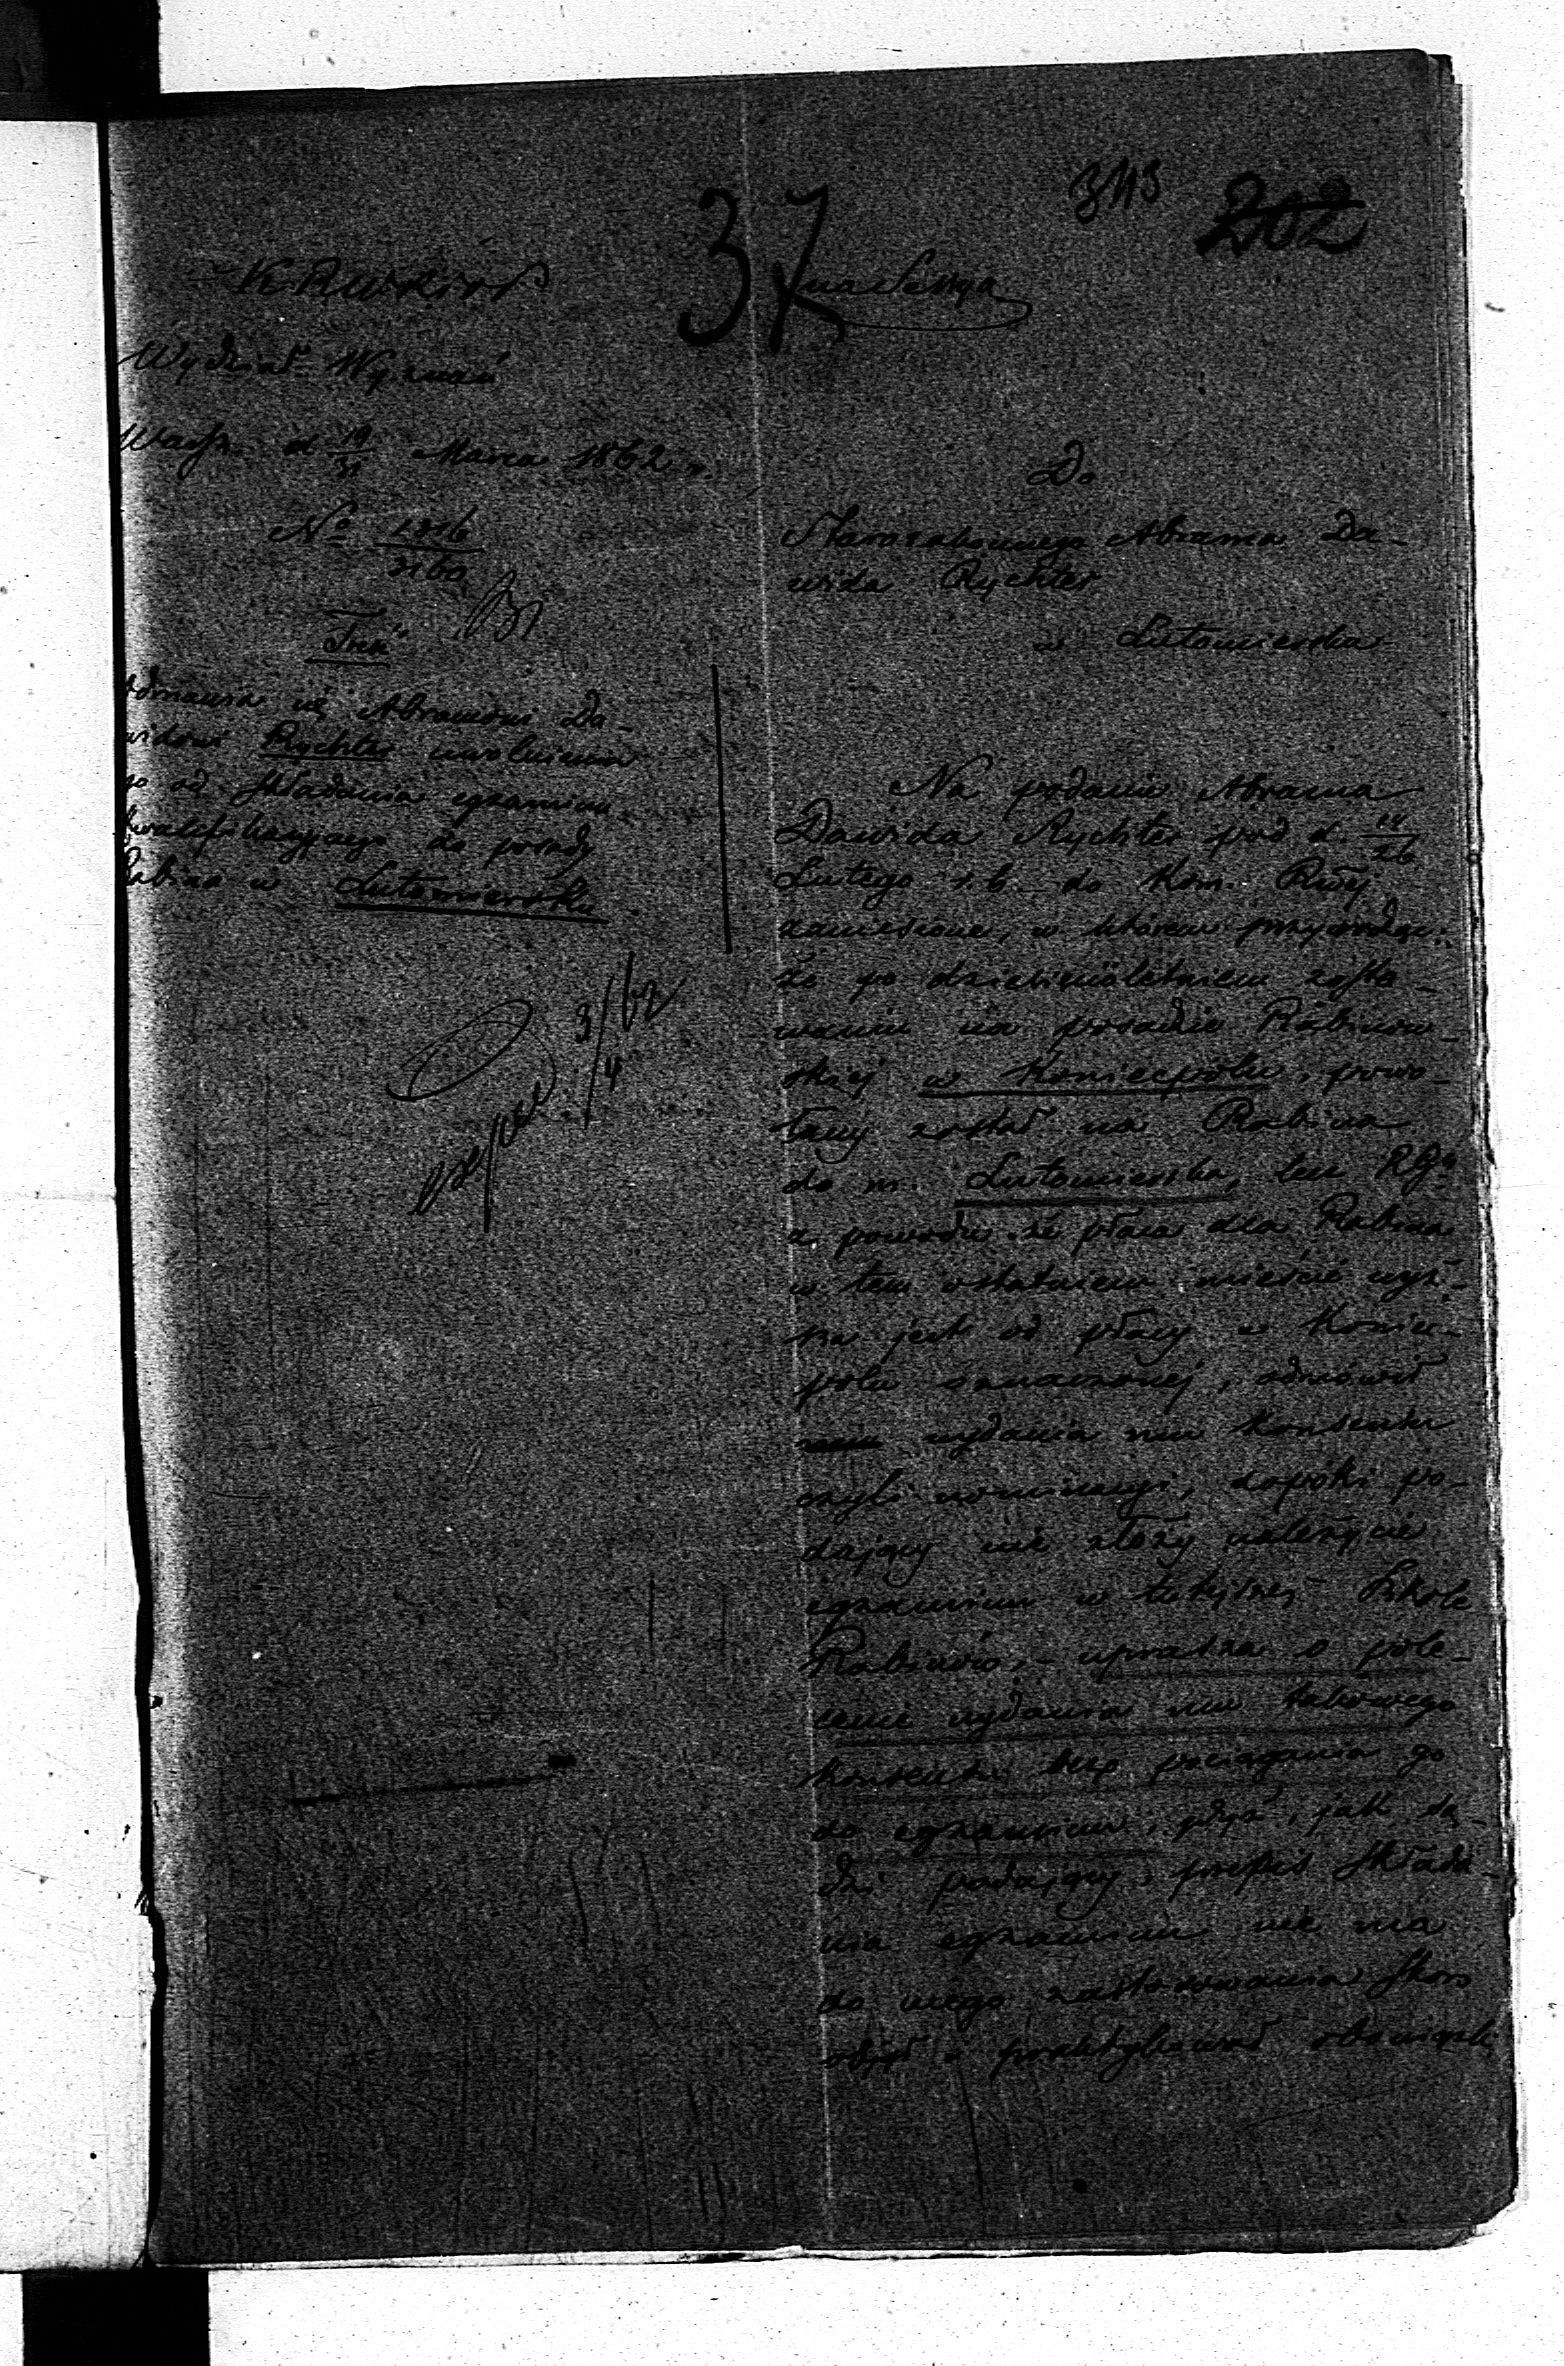 3113 202
37
Wydział Wyznań
Warsz. d 19/31 Marca 1862 r.
No 1316/3160
Treść
Odmawia się Abramowi Da-
widowi Rychter uwolnienia
go od składania egzaminu
kwalifikacyjnego do posady
Rabina w Lutomiersku
3/4 62
Do
Starozakonnego Abrama Da-
wida Rychter
w Lutomiersku
Na podanie Abrama
Dawida Rychter pod d. 14/26
Lutego r. b. do Kom. Rwej
zaniesione, w którem przywodząc
że po dziewięcioletniem zosta-
waniu na posadzie Rabinow-
skiej w Koniecpolu, powo-
łany został na Rabina
do m. Lutomierska, lecz RG
z powodu że płaca dla Rabina
w tem ostatniem mieście wyż-
sza jest od płacy w Koniec-
polu oznaczonej, odmówił
wydania mu konsensu
czyli nominacyi, dopóki po-
dający nie złoży należycie
egzaminu w tutejszej Szkole
Rabinów, uprasza o pole-
cenie wydania mu takowego
konsensu bez pociągania go
do egzaminu, gdyż, jak są-
dzi podający, przepis składa-
nia egzaminu nie ma
do niego zastosowania skoro
objął i praktykował obowiązki